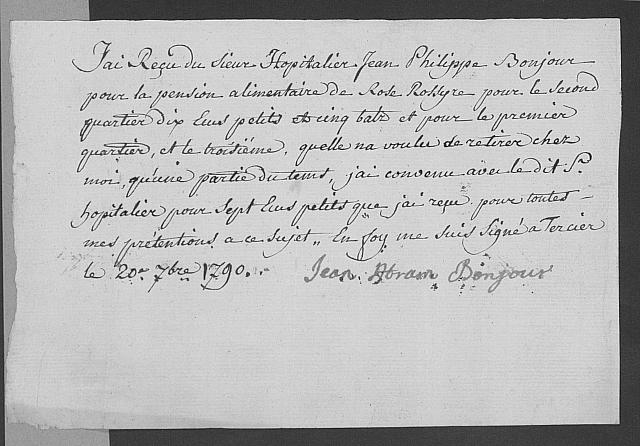 J'ai Reçu du Sieur Hopitalier Jean Philippe Bonjour
pour la pension alimentaire de Rose pour le second
quartier dix Ecus petits et cinq batz et pour le premier
quartier, et le troisiéme, quelle na voulu de retirer chez
moi, qu'une partie du tems, j'ai convenu avec le dit Sr.
hopitalier pour Sept Ecus petits que j'ai reçu pour toutes -
mes prétentions a ce sujet,, En foy me suis Signé a Tercier
le 20e 7bre 1790.
Jean Abram Bonjour